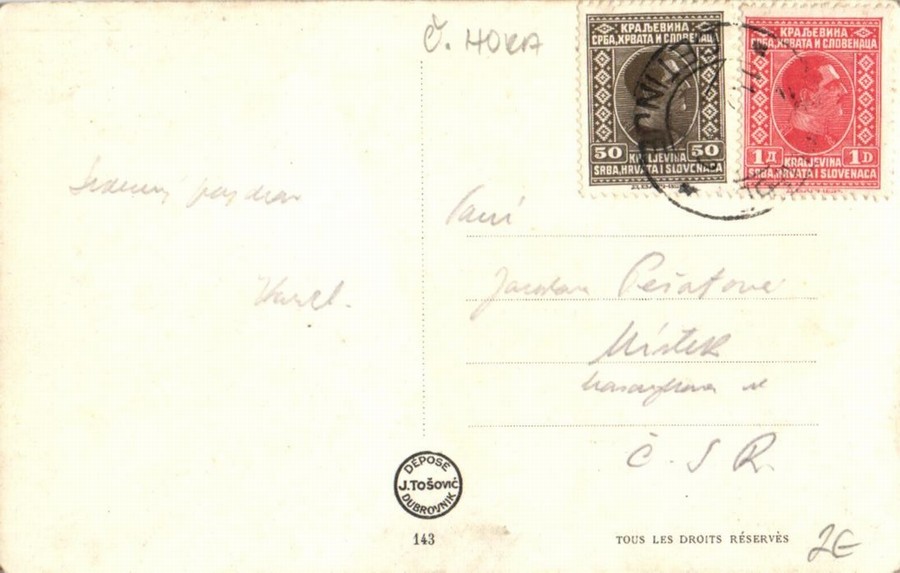 Č. HORA
КРАЉЕВИНА
СРБА, ХРВАТА И СЛОВЕНАЦА
50 50
KRALJEVINA
SRBA, HRVATA I SLOVENACA
КРАЉЕВИНА
СРБА, ХРВАТА И СЛОВЕНАЦА
1Д 1D
KRALJEVINA
SRBA, HRVATA I SLOVENACA
CETINJE
Srdečný pozdrav
Karel.
Paní
Místek
Č. S. R.
DÉPOSÉ
J. TOŠOVIĆ
DUBROVNIK
143
TOUS LES DROITS RÉSERVÉS
2E